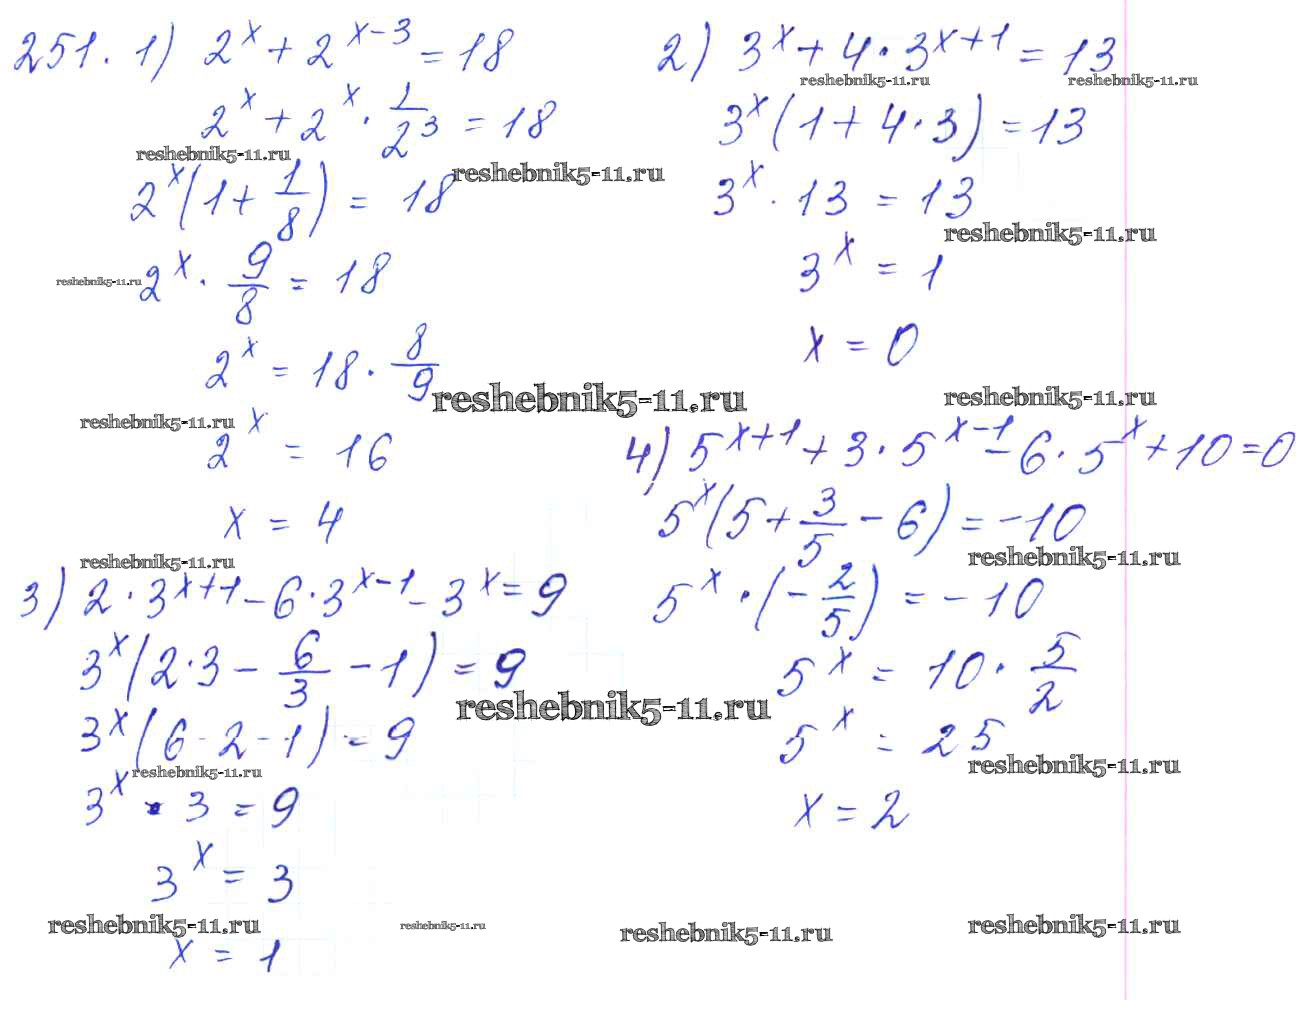 251. 1) 2^x + 2^(x-3) = 18
2^x + 2^x · 1/2^3 = 18
reshebnik5-11.ru
reshebnik5-11.ru
2^x (1 + 1/8) = 18
2^x · 9/8 = 18
reshebnik5-11.ru
2^x = 18 · 8/9
reshebnik5-11.ru
reshebnik5-11.ru
2^x = 16
x = 4
reshebnik5-11.ru
2) 3^x + 4 · 3^(x+1) = 13
reshebnik5-11.ru
reshebnik5-11.ru
3^x (1 + 4 · 3) = 13
3^x · 13 = 13
reshebnik5-11.ru
3^x = 1
x = 0
reshebnik5-11.ru
3) 2 · 3^(x+1) - 6 · 3^(x-1) - 3^x = 9
3^x (2 · 3 - 6/3 - 1) = 9
reshebnik5-11.ru
3^x (6 - 2 - 1) = 9
reshebnik5-11.ru
3^x · 3 = 9
3^x = 3
reshebnik5-11.ru
reshebnik5-11.ru
x = 1
4) 5^(x+1) + 3 · 5^(x-1) - 6 · 5^x + 10 = 0
5^x (5 + 3/5 - 6) = -10
reshebnik5-11.ru
5^x · (-2/5) = -10
5^x = 10 · 5/2
5^x = 25
reshebnik5-11.ru
x = 2
reshebnik5-11.ru
reshebnik5-11.ru